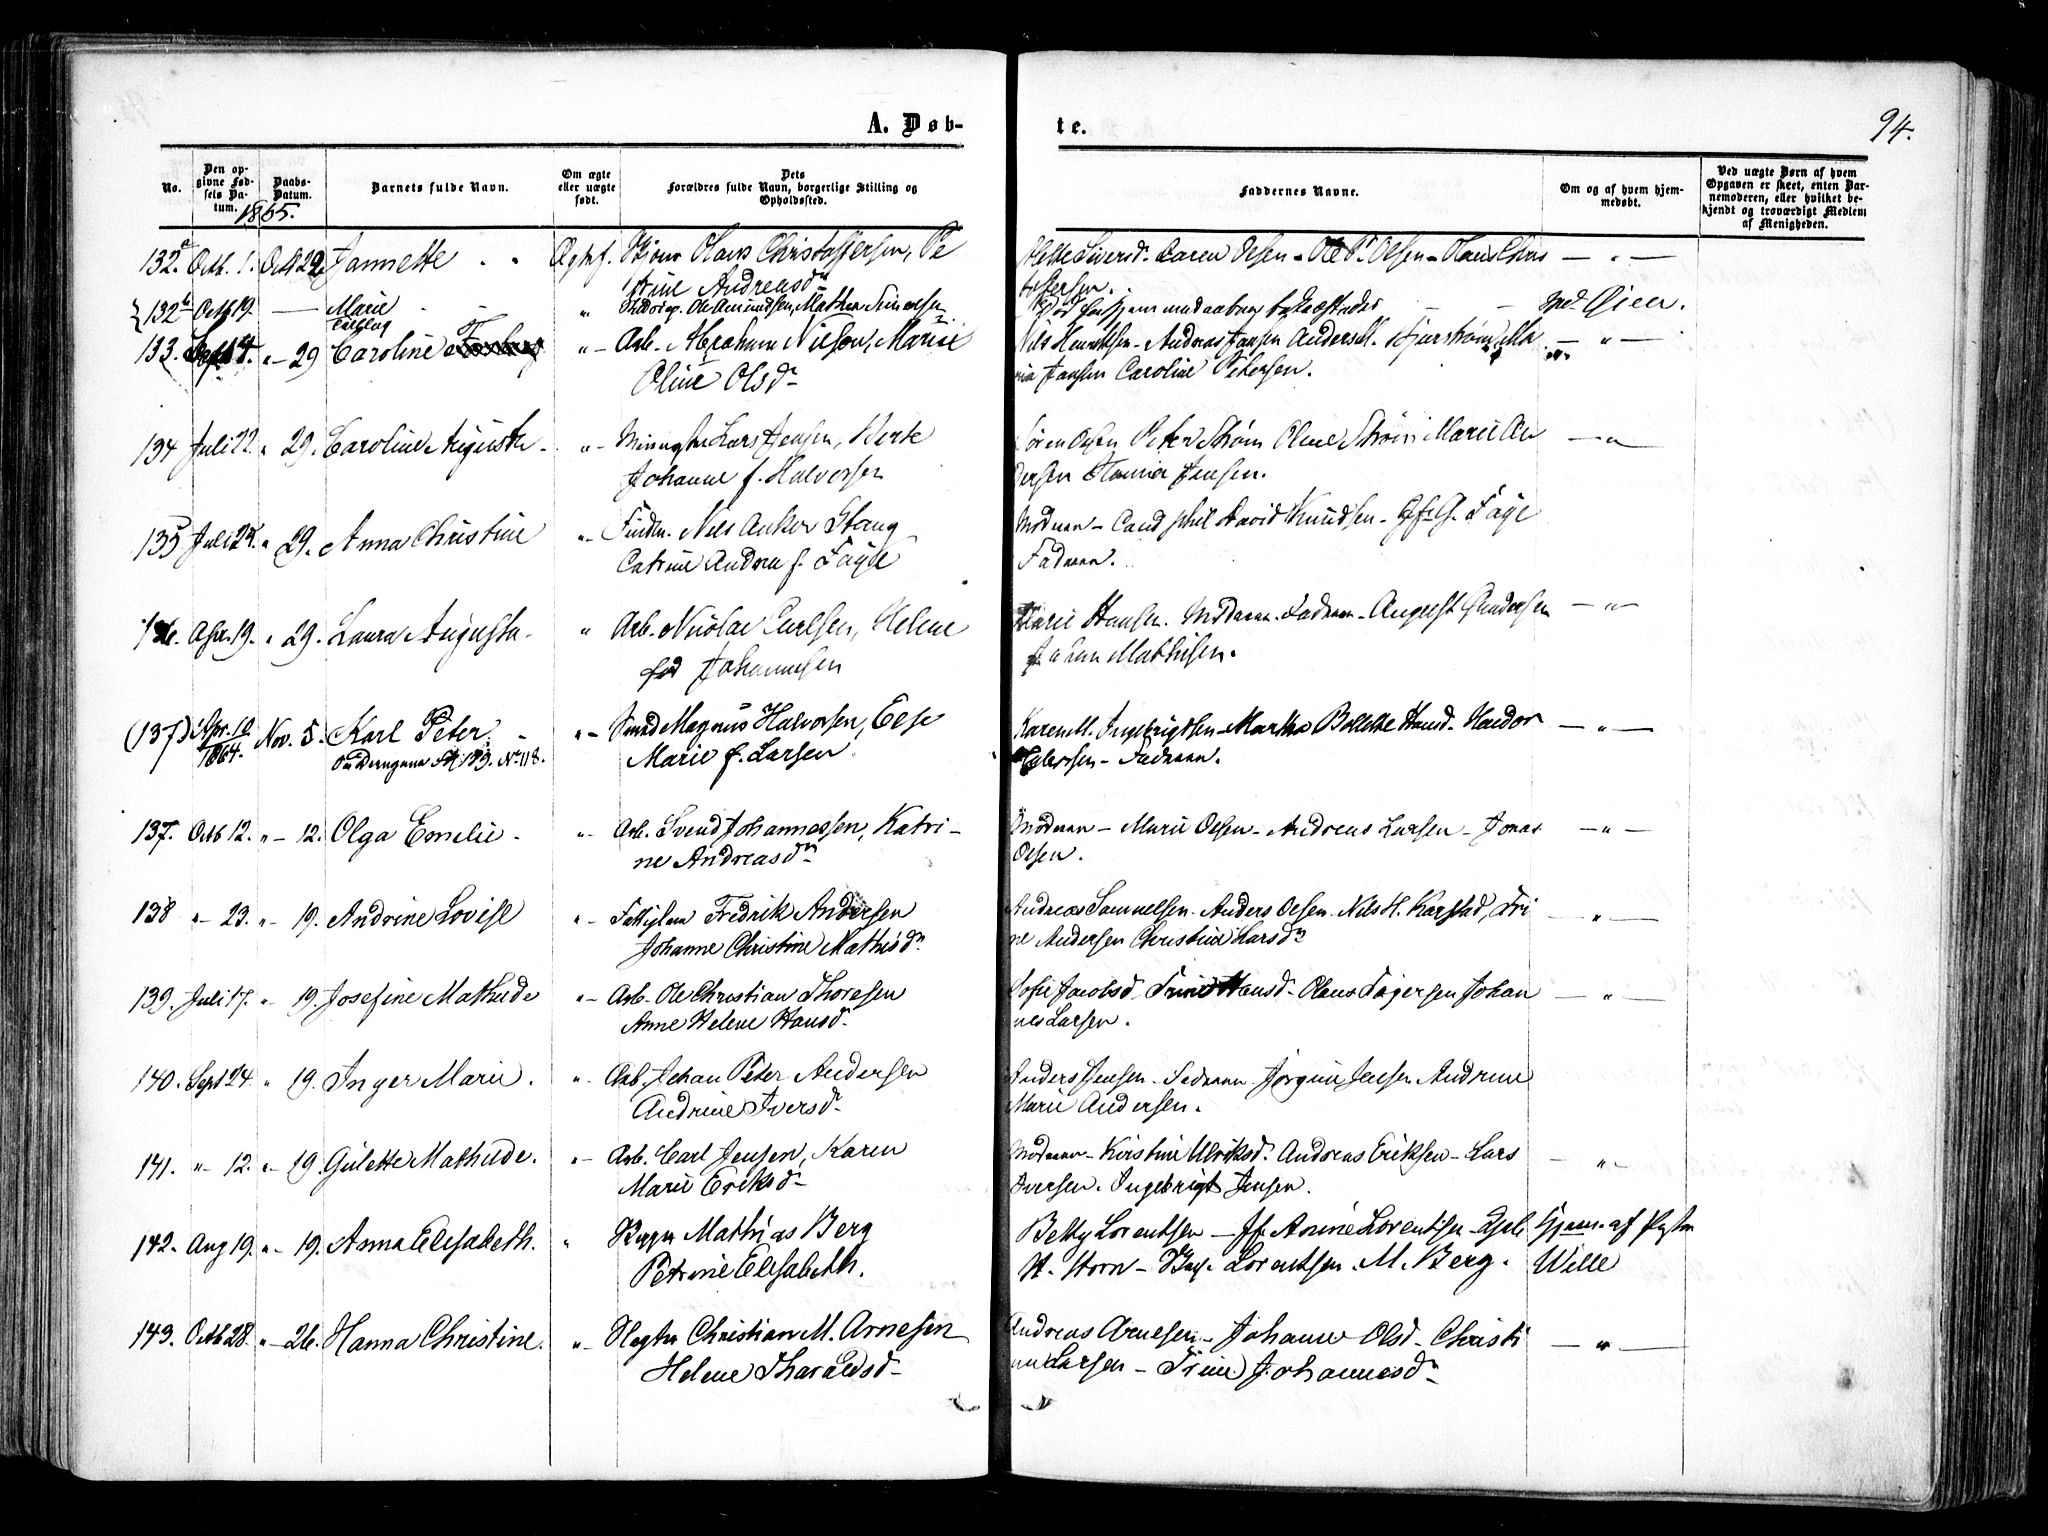 A. Døb-
te.
94.
No.
Den op-
givne Fød-
sels Da-
tum.
Daabs-
Datum.
Barnets fulde Navn.
Om ægte
eller uægte
født.
Dets
Forældres fulde Navn, borgerlige Stilling og
Opholdssted.
Faddernes Navne.
Om og af hvem hjem-
medøbt.
Ved uægte Børn af hvem
Opgaven er skeet, enten Bar-
nemoderen, eller hvilket be-
kjendt og troværdigt Medlem
af Menigheden.
1865.
132a Octb. 1. Octb 29 Jannette Ægtef. Olaus Christoffersen, Pe
trine Andreasdr
132b Octb 19. Marie " Ole Amundsen, Mathea Simensen
Hjem.
133. " 29 Caroline " Arb. Abraham Nilsen, Marie
Oline Olsdr
Andreas Jansen
Jansen Caroline Petersen.
134 Juli 22. " 29. Caroline Augusta " Lars Jensen, Berte
Johanne f. Halvorsen
Søren Olsen Peter Strøm Oline Strøm Marie An
dersen Jensen.
135 Juli 25. " 29. Anna Christine " Nils Anker Stang
Catrine Andrea f. Faye
Modren - Cand phil David Knudsen - G. Faye
Fadren.
136. Apr. 19. " 29. Laura Augusta " Arb. Nicolai Carlsen, Helene
fød Johannesen
Marie Hansen. Modren. Fadren - August Gundersen
Johan Mathisen.
(137) Apr. 10 Nov. 5. Karl Peter " Smed Magnus Halvorsen, Else
1864. No 118. Marie f. Larsen
Karen M. Ingebrigtsen - Martha Bolette Hansd. Haldor
Fadren.
137. Octb 12. " 12. Olga Emilie " Arb. Svend Johannessen, Katri-
ne Andreasdr
Modren - Marie Olsen - Andreas Larsen - Jonas
Olsen.
138 " 23. " 19. Andrine Lovise " Fredrik Andersen
Johanne Christine Mathisdr
Andreas Samuelsen. Anders Olsen. Nils H. Karstad, Tri
ne Andersen Christine Larsdr
139. Juli 17. " 19. Josefine Mathilde " Arb. Ole Christian Thoresen
Anne Helene Hansd.
Sofie Jacobsd. Trine Hansd. Olaus Johan
nes Larsen.
140. Sept 24. " 19. Inger Marie. " Arb. Johan Peter Andersen
Andrine Iversdr
Anders Jensen - Fadren - Jørgine Jensen Andrine
Marie Andersen.
141. " 12. " 19. Gulette Mathilde. " Arb. Carl Jensen, Karen
Marie Eriksdr
Modren - Kirstine Ulriksd. Andreas Eriksen - Lars
Iversen. Ingebrigt Jensen.
142. Aug 19. " 19. Anna Elisabeth. " Mathias Berg
Petrine Elisabeth.
Betty Lorentsen - Jfr Anine Lorentsen - Hjem. af Pastor
H. Horn - Lorentsen. M. Berg. Wille
143. Octb 28. " 26. Hanna Christine. " Christian M. Arnesen
Helene Tharaldsdr
Andreas Arnesen - Johanne Olsd - Christi
ne Larsen - Trine Johannesdr